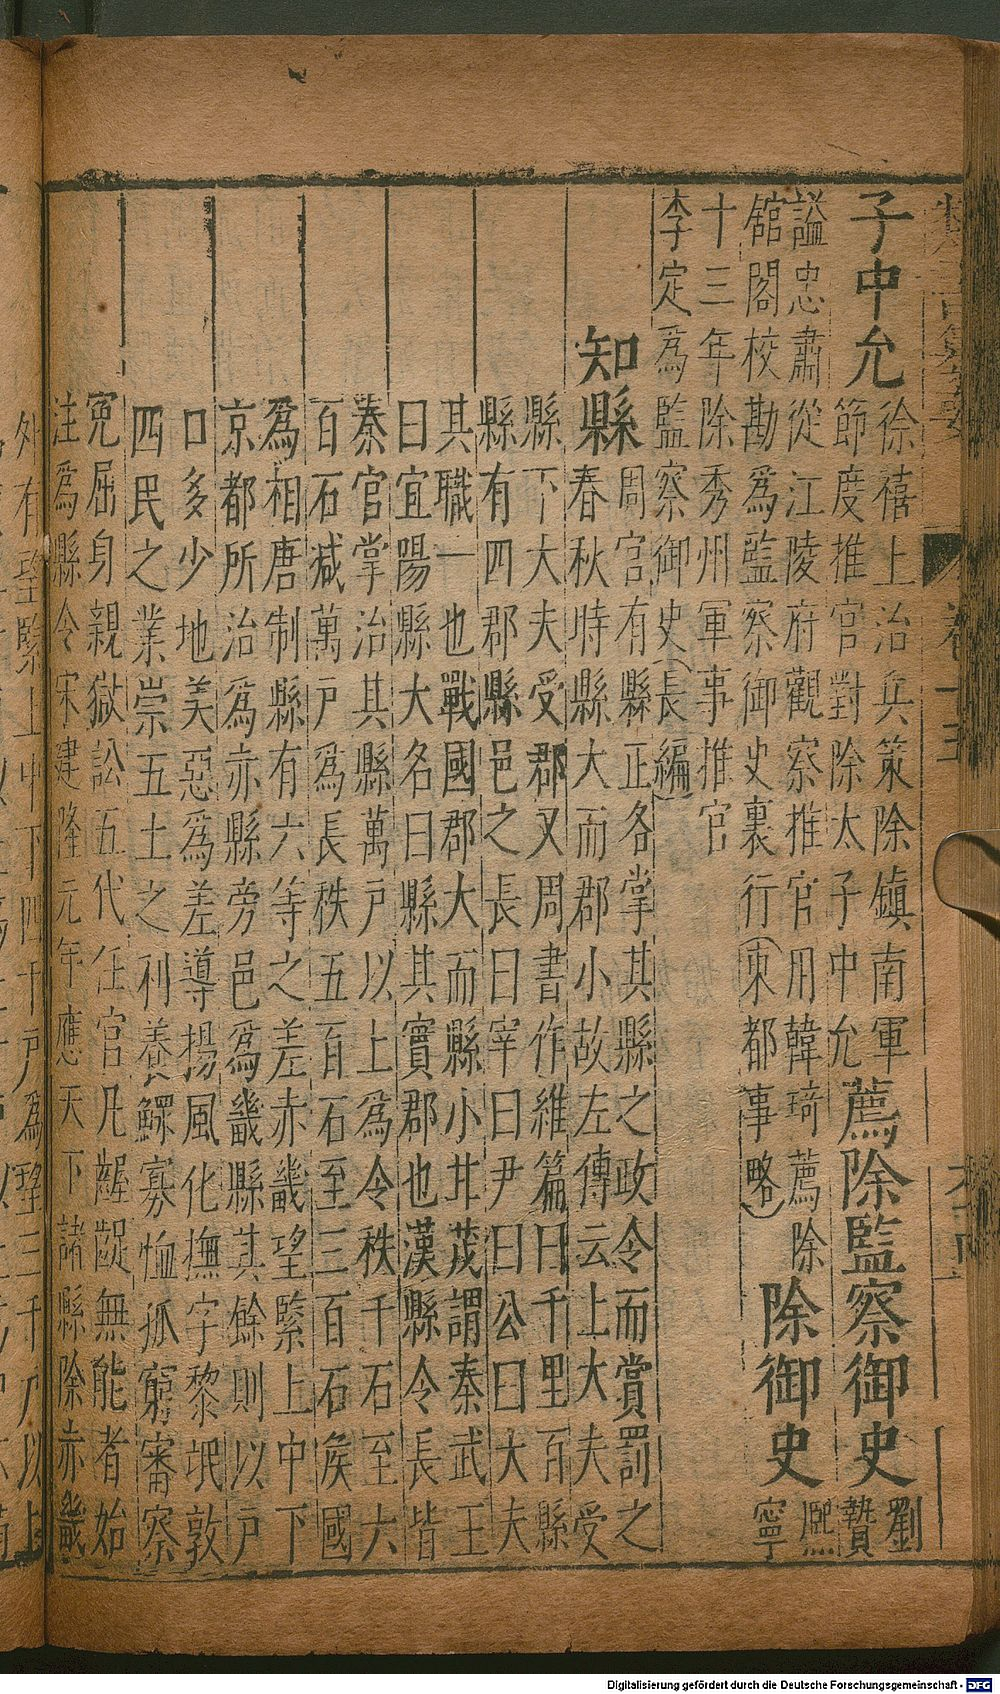 子中允
徐禧上治兵策除鎮南軍
節度推官對除太子中允
薦除監察御史
劉
贄
謚忠肅從江陵府觀察推官用韓琦薦除
舘閣校勘爲監察御史裏行(東都事略)
除御史
熙
寧
十三年除秀州軍事推官
李定爲監察御史(長編)
知縣
周官有縣正各掌其縣之政令而賞罰之
春秋時縣大而郡小故左傳云上大夫受
縣下大夫受郡又周書作維篇曰千里百縣
縣有四郡縣邑之長曰宰曰尹曰公曰大夫
其職一也戰國郡大而縣小甘茂謂秦武王
曰宜陽縣大名曰縣其實郡也漢縣令長皆
秦官掌治其縣萬户以上爲令秩千石至六
百石減萬户爲長秩五百石至三百石侯國
爲相唐制縣有六等之差赤畿望緊上中下
京都所治爲赤縣旁邑爲畿縣其餘則以户
口多少地美惡爲差導揚風化撫字黎氓敦
四民之業崇五土之利養鰥寡恤孤窮審察
冤屈身親獄訟五代任官凡齷齪無能者始
注爲縣令宋建隆元年應天下諸縣除赤畿
外有望緊上中下四千户爲望三千户以上
Digitalisierung gefördert durch die Deutsche Forschungsgemeinschaft - DFG